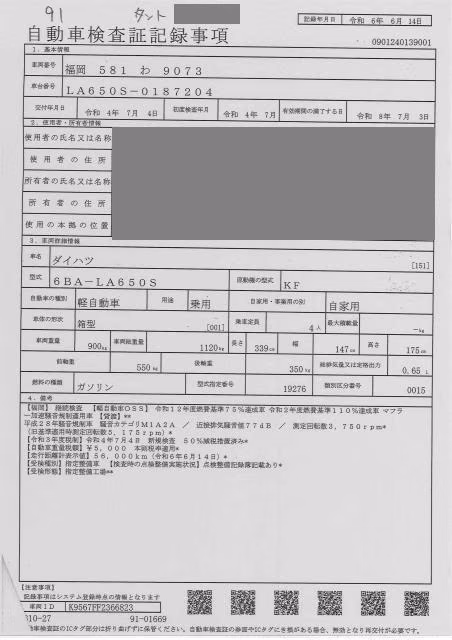 91 タント
記録年月日 令和 6年 6月 14日
自動車検査証記録事項
0901240139001
1. 基本情報
車両番号 福岡 581 わ 9073
車台番号 LA650S-0187204
交付年月日 令和 4年 7月 4日 初度検査年月 令和 4年 7月 有効期間の満了する日 令和 8年 7月 3日
2. 使用者・所有者情報
使用者の氏名又は名称
使用者の住所
所有者の氏名又は名称
所有者の住所
使用の本拠の位置
3. 車両詳細情報
車名 ダイハツ [151]
型式 6BA-LA650S 原動機の型式 KF
自動車の種別 軽自動車 用途 乗用 自家用・事業用の別 自家用
車体の形状 箱型 [001] 乗車定員 4人 最大積載量 -kg
車両重量 900kg 車両総重量 1120kg 長さ 339cm 幅 147cm 高さ 175cm
前軸重 550kg 後軸重 350kg 総排気量又は定格出力 0.65 L
燃料の種類 ガソリン 型式指定番号 19276 類別区分番号 0015
4. 備考
【福岡】 継続検査 【軽自動車OSS】 令和12年度燃費基準75%達成車 令和2年度燃費基準110%達成車 マフラ
ー加速騒音規制適用車 【貸渡】**
平成28年騒音規制車 騒音カテゴリM1A2A / 近接排気騒音値77dB / 測定回転数3,750rpm*
(旧基準適用時測定回転数5,175rpm)*
【令和3年度税制】令和4年7月4日 新規検査 50%減税措置済み*
【自動車重量税額】¥5,000 本則税率適用*
【走行距離計表示値】56,000km(令和6年6月14日)*
【受検種別】指定整備車 【検査時の点検整備実施状況】点検整備記録簿記載あり*
【受検形態】指定整備工場**
【注意事項】
記録事項はシステム登録時点の情報となります
車両ID K9567FF2366823
010-27 91-01669
動車検査証のICタグ部分は折り曲げずに保管ください。自動車検査証の券面やICタグにき損がある場合、無効となり再交付が必要です。